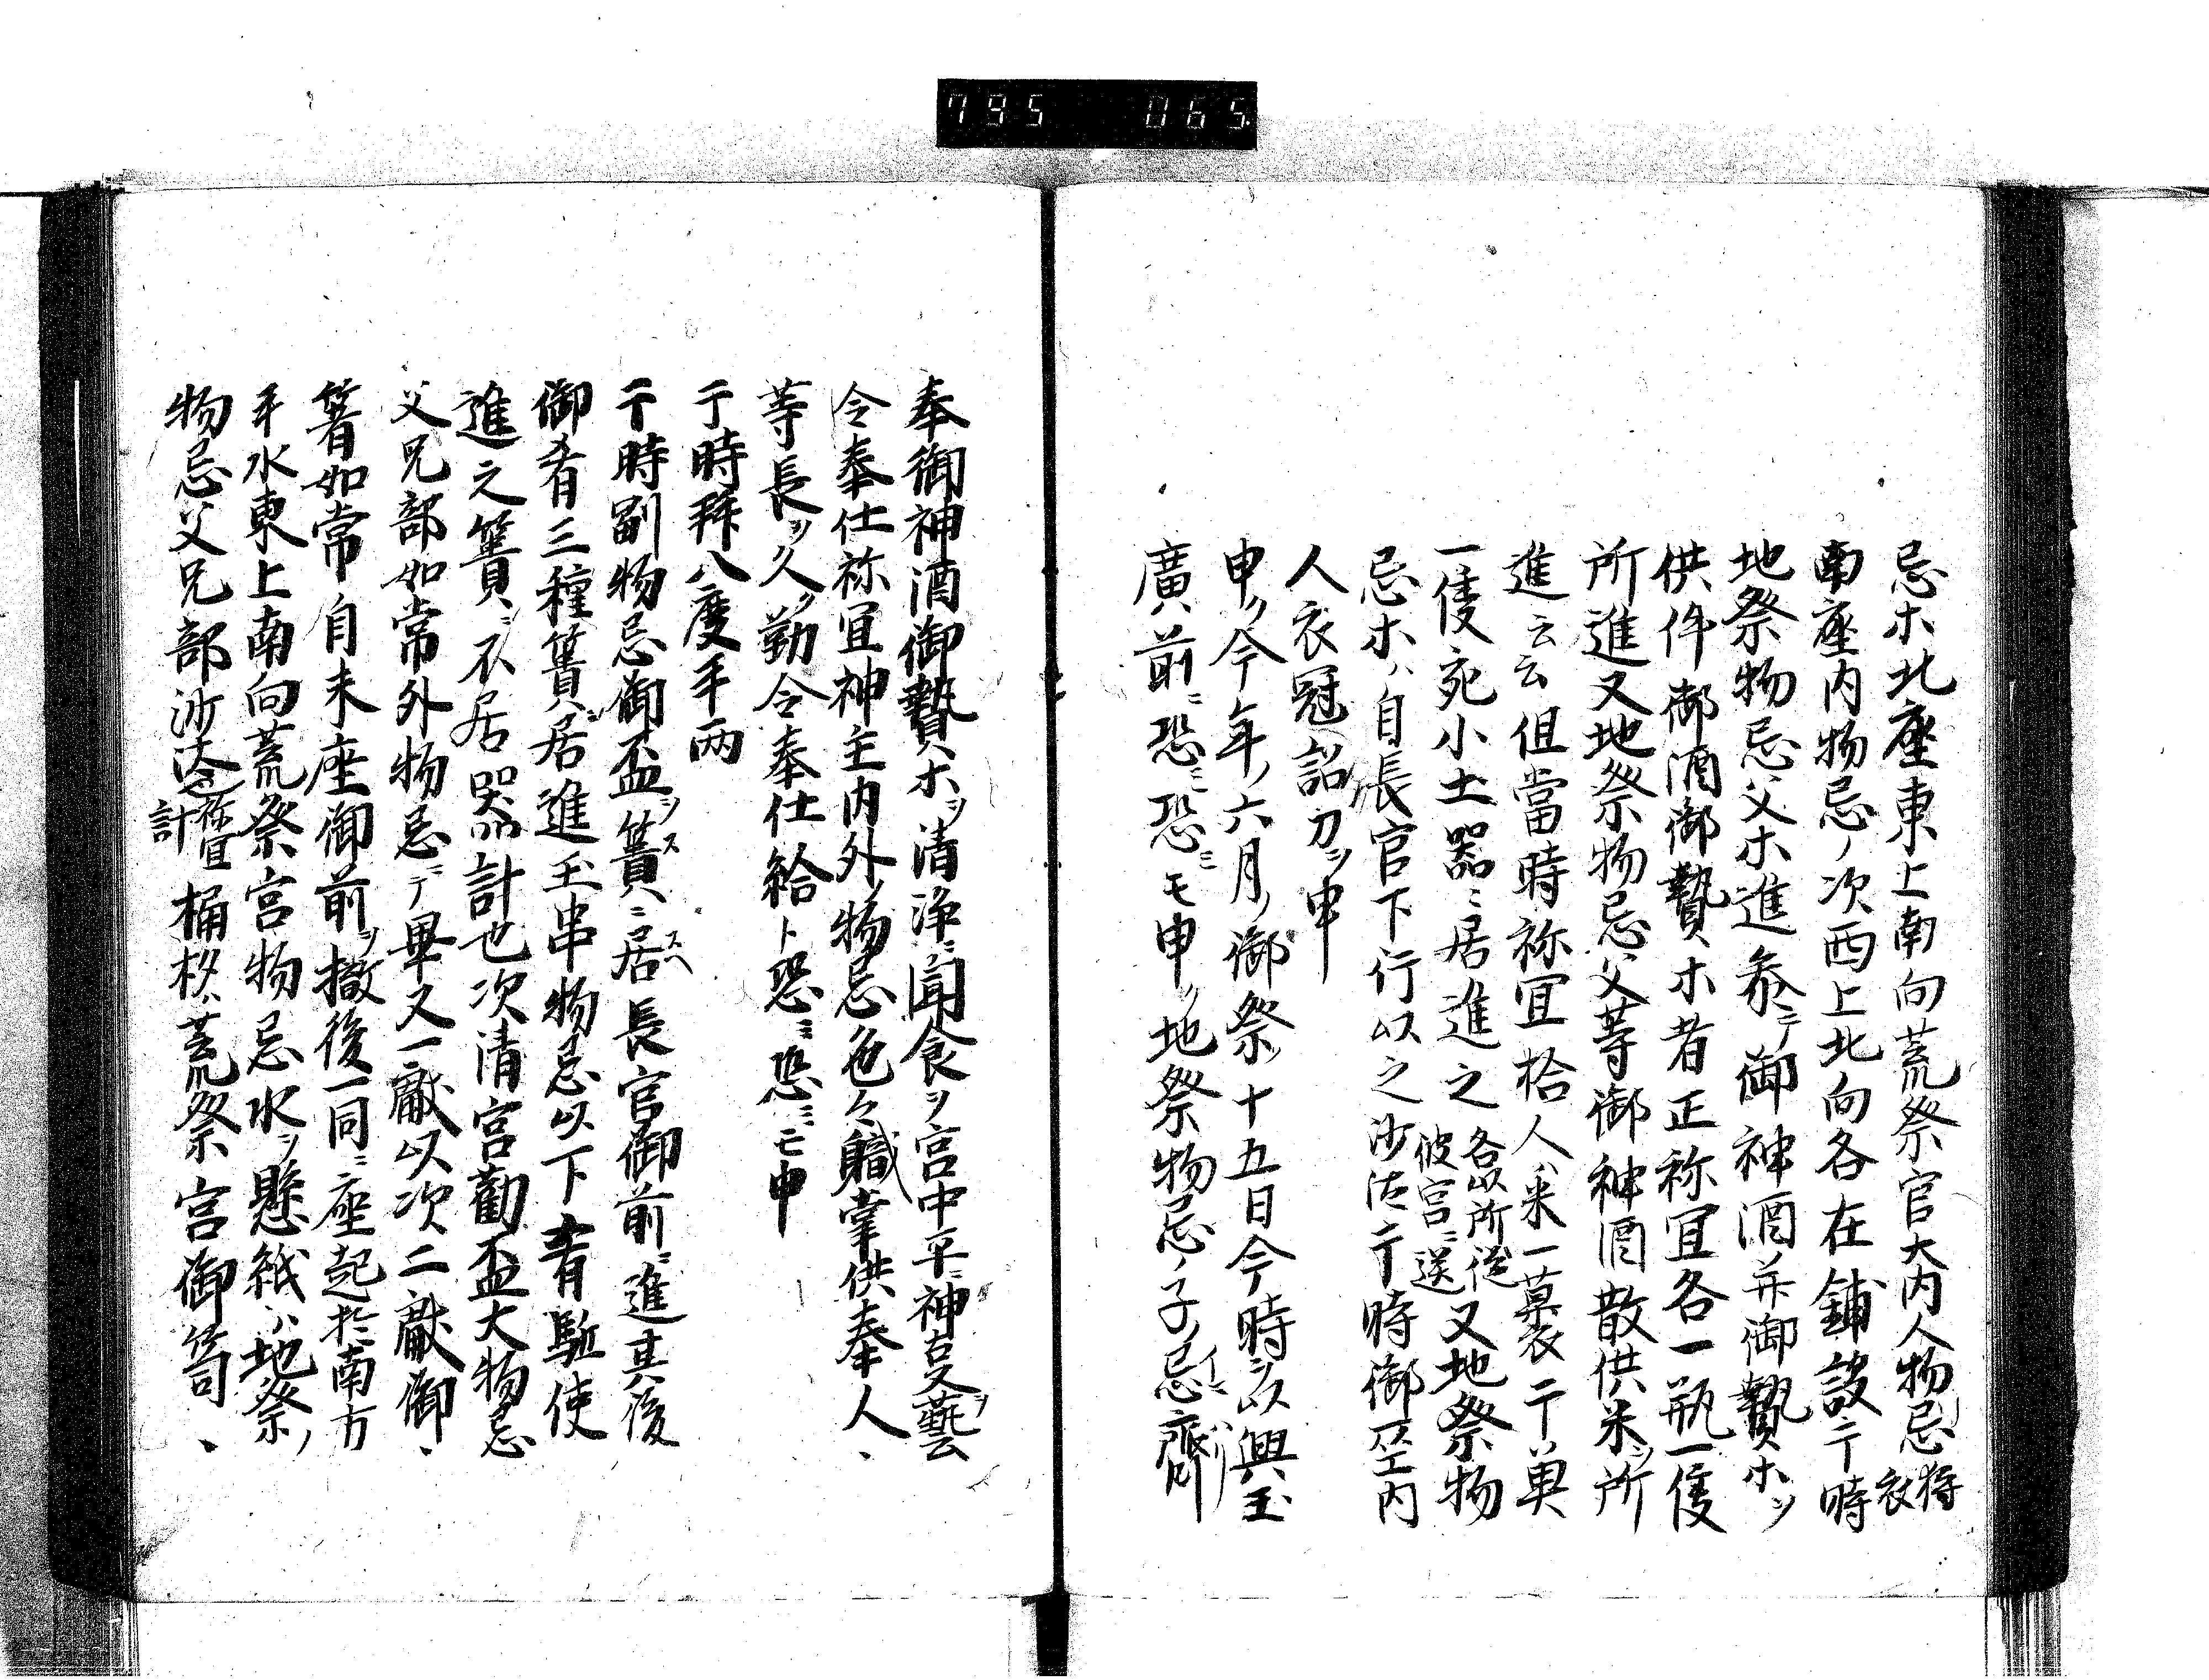 795 065
忌ホ北座東上南向荒祭宮大内人物忌 狩衣
南座内物忌ノ次西上北向各在鋪設于時
地祭物忌父ホ進参テ御神酒并御贄ホヲ
供件御酒御贄ホ者正祢宜各一瓶一隻
所進又地祭物忌父等御神酒散供米ヲ所
進云云但當時祢宜拾人ハ米一裹干奠
一隻宛小土器ニ居進之 各以所従 彼宮ニ送 又地祭物
忌ホハ自長官下行以之沙汰于時御巫内
人衣冠詔刀ヲ申
申ク今年ノ六月ノ御祭ノ十五日今時ヲ以興玉
廣前ニ恐ミ恐ミモ申ク地祭物忌ノ子忌齋
奉御神酒御贄ホヲ清浄ニ聞食ヲ宮中平ニ神支藝ヲ
令奉仕祢宜神主内外ノ物忌色々職掌供奉人、
等長ヲ久ク勤令奉仕給ト恐ミ恐ミモ申
于時拜八度手両
于時副物忌御盃ヲ簀ニ居長官御前ニ進其後
御肴三種簀ニ居進玉串物忌以下肴駈使
進之簀ニ不居器計也次清宮勸盃大物忌
父兄部如常外物忌ニテ畢又一獻以次二獻御、
箸如常自末座御前ヲ撤後一同ニ座起於南方
手水東上南向荒祭宮物忌水ヲ懸紙ハ地祭ノ
物忌父兄部沙汰之 祢宜計 桶杓ハ荒祭宮御笥、